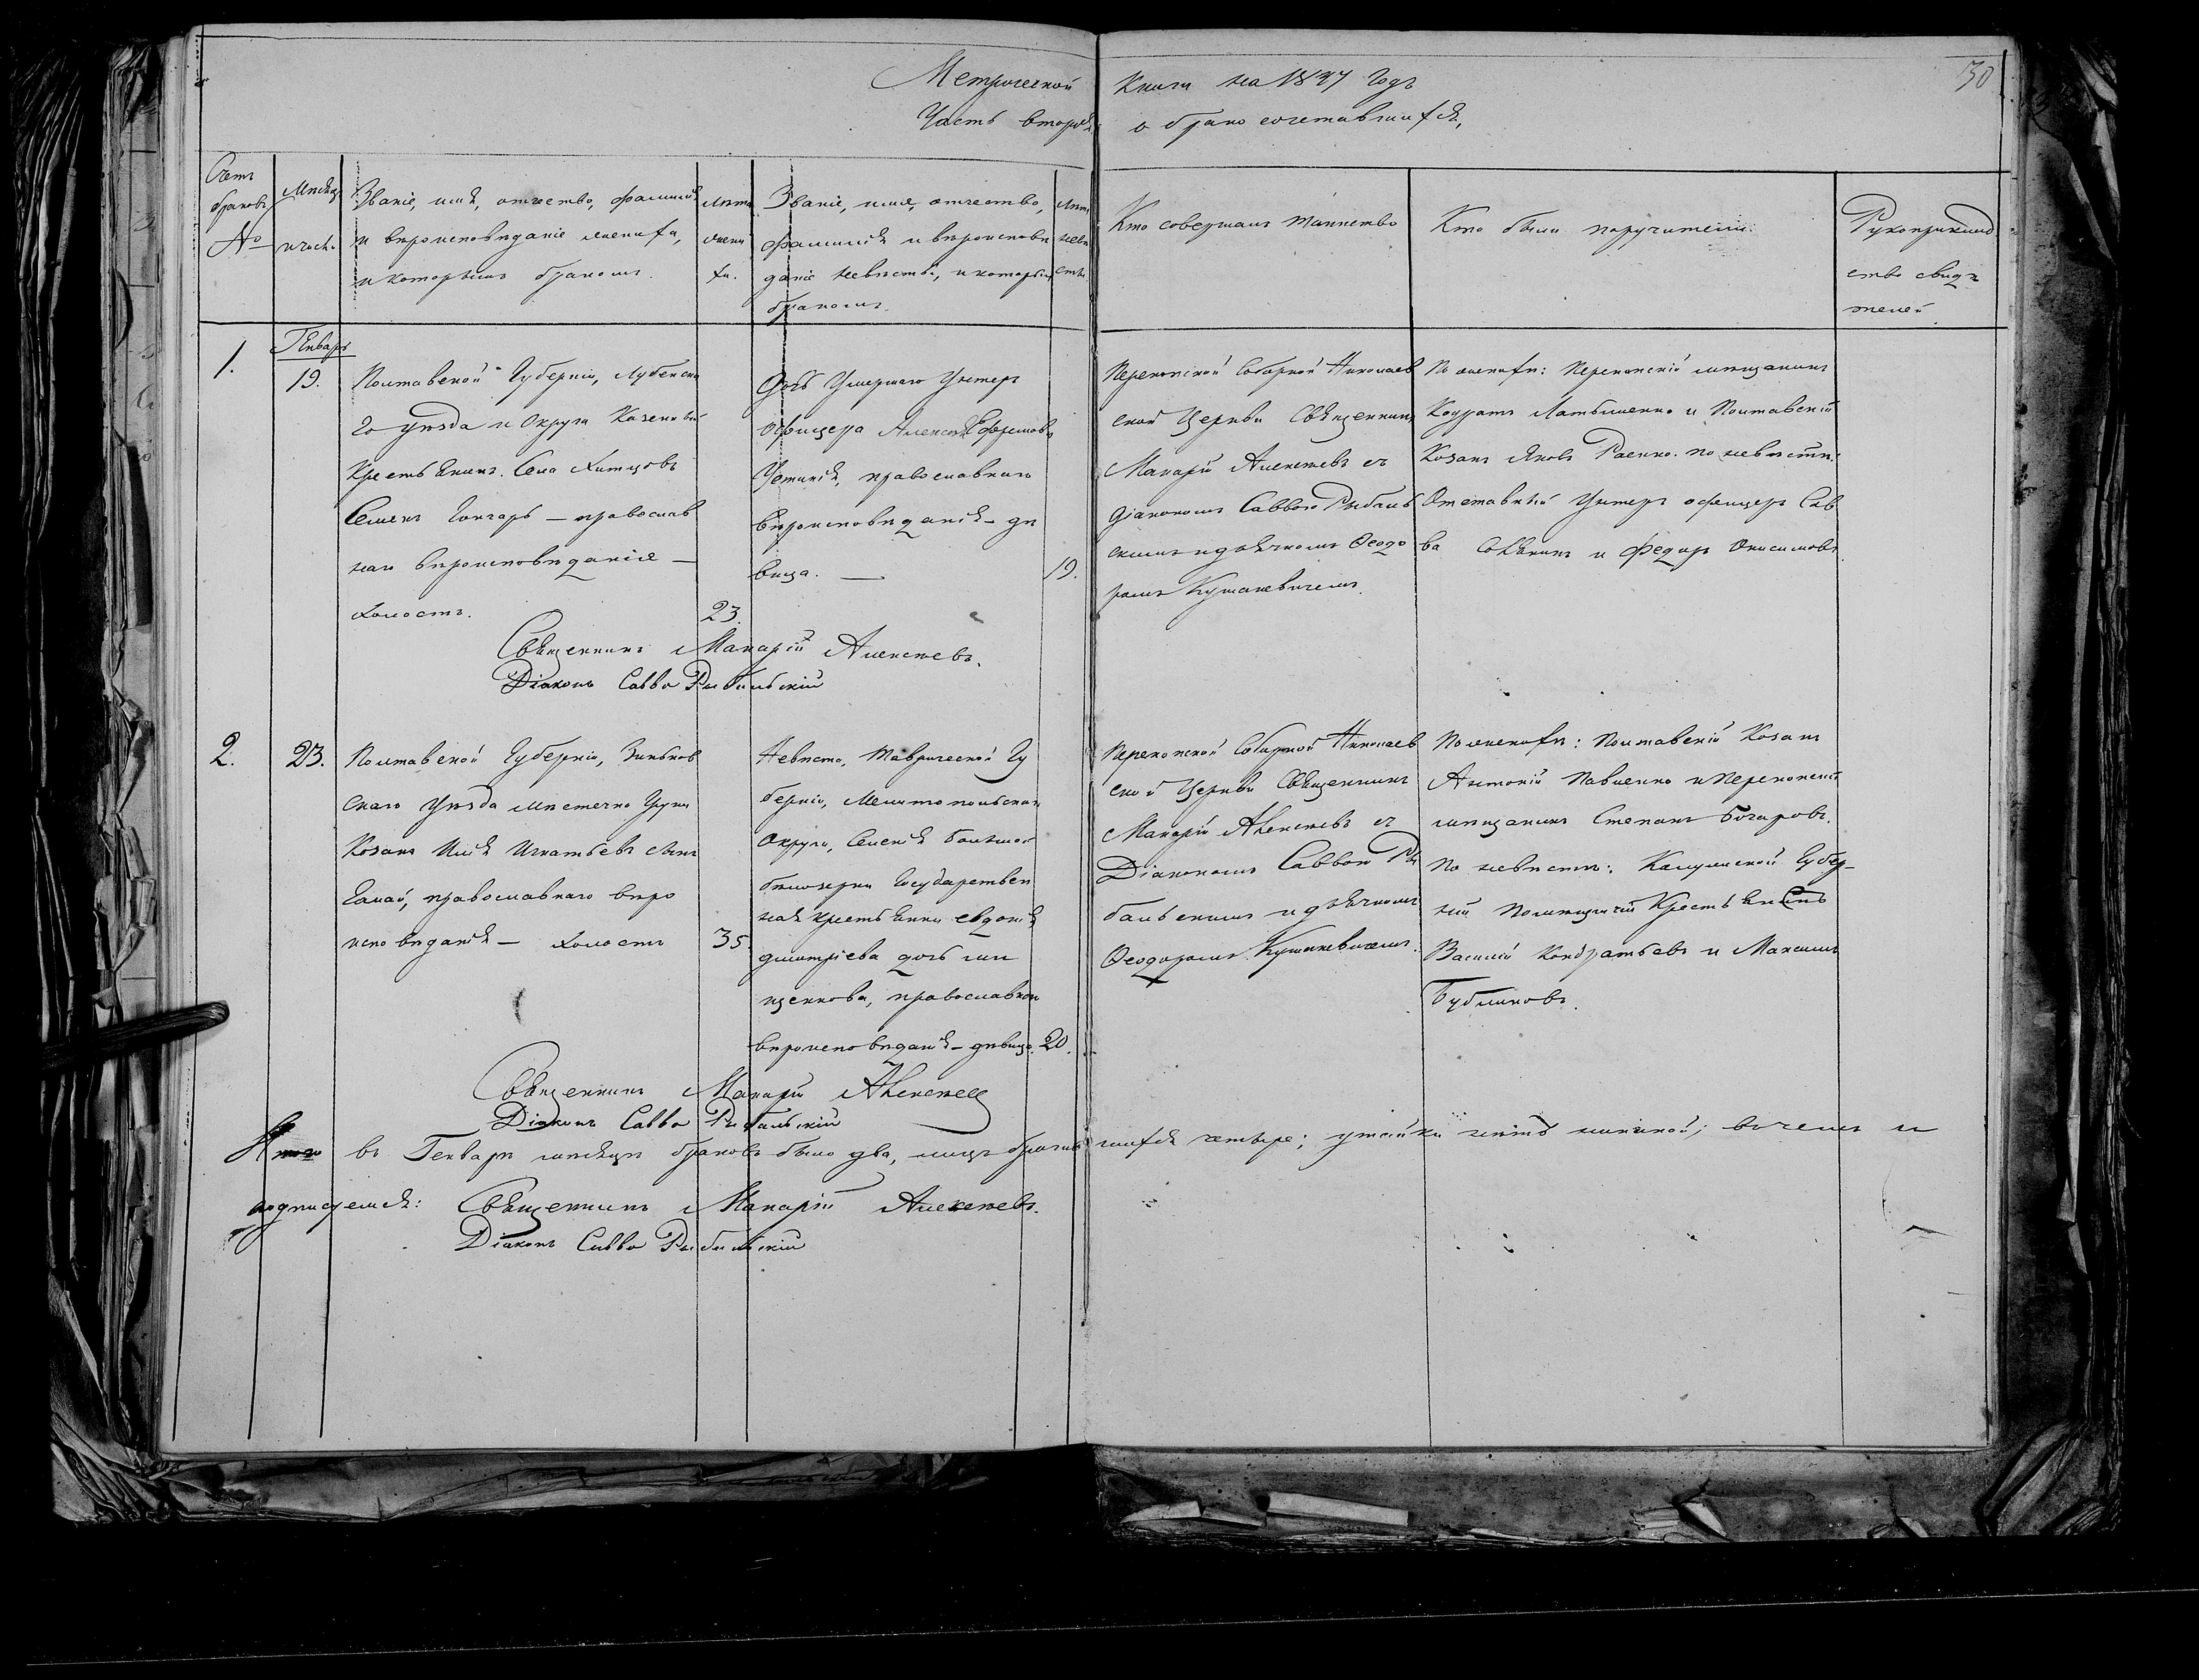 Метрической Книги на 1847 годъ
Часть вторая о брако сочетавшихся,
30
Счетъ
браковъ
№
Мѣсяцъ
и число
Званіе, имя, отчество, фамилія
и вѣроисповѣданіе жениха,
и которымъ бракомъ.
Лѣта
жени
ха.
Званіе, имя, отчество,
фамилія и вѣроисповѣ
даніе невѣсты, и которымъ
бракомъ.
Лѣта
невѣ
сты
Кто совершалъ таинство
Кто были поручители
Рукоприклад
ство свидѣ
телей.
1.
Генварь
19.
Полтавской Губерніи, Лубенска
го уѣзда и округи Казенный
Крестьянинъ Села Хитцовъ
Семенъ Гончаръ — православ
наго вѣроисповѣданія —
холостъ.
23.
Дочь Умершаго Унтеръ
офицера Алексѣя Ефремова
Устинія, православнаго
вѣроисповѣданія — дѣ
вица. —
19.
Перекопской Соборной Николаев
ской Церкви Священникъ
Макарій Алексѣевъ съ
діакономъ Саввою Рыбаль
скимъ и дьячкомъ Ѳеодо
ромъ Кушакевичемъ.
По женихѣ: Перекопскій мѣщанинъ
Кодратъ Латышенко и Полтавскій
Козакъ Яковъ Раенко. по невѣстѣ:
Отставный Унтеръ офицеръ Сав
ва и Федоръ Онисимовъ
Священникъ Макарій Алексѣевъ.
Діаконъ Савва Рыбальскій
2.
23.
Полтавской Губерніи, Зиньков
скаго уѣзда мѣстечка Груни
Козакъ Илія Игнатьевъ сынъ
Гамай, православнаго вѣро
исповѣданія — холостъ
35.
Невѣста, Таврической Гу
берніи, Мелитопольскаго
округа, Селенія большой
бѣлозерки Государствен
ная крестьянка Евдокія
Дмитріева дочь
православнаго
вѣроисповѣданія — дѣвица.
20.
Перекопской Соборной Николаев
ской Церкви Священникъ
Макарій Алексѣевъ съ
Діакономъ Саввою Ры
бальскимъ и дьячкомъ
Ѳеодоромъ Кушакевичемъ.
По женихѣ: Полтавскій Козакъ
Антоній Павленко и Перекопскій
мѣщанинъ Степанъ Бочаровъ.
По невѣстѣ: Калужской Губер-
ніи Крестьянинъ
Василій Кондратьевъ и Максимъ
Бубликовъ.
Священникъ Макарій Алексѣевъ
Діаконъ Савва Рыбальскій
Итого въ Генварѣ мѣсяцѣ браковъ было два, лицъ брачившихся четыре; утайки нѣтъ никакой; въ чемъ и
подписуемся: Священникъ Макарій Алексѣевъ.
Діаконъ Савва Рыбальскій